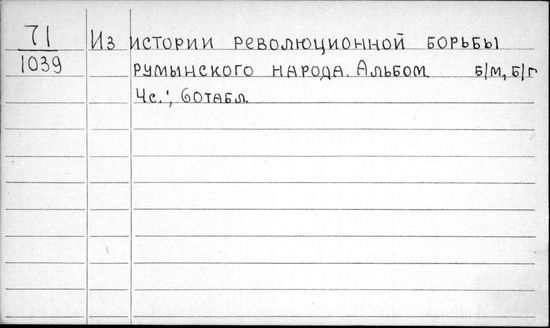 71 Из истории революционной борьбы
1039 румынского народа. Альбом б/м, б/г
4с.; 60табл.